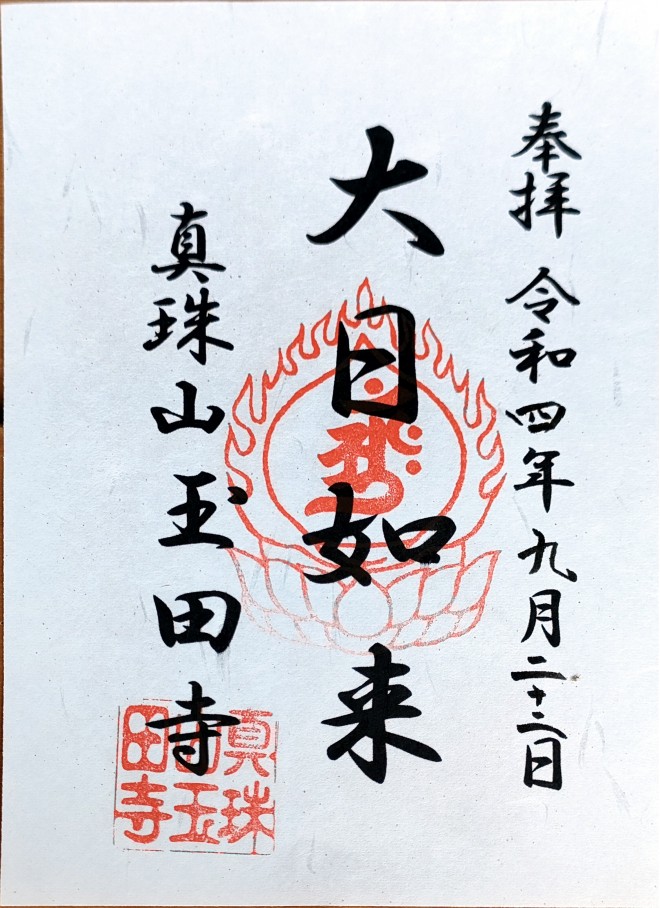 奉拝 令和四年九月二十二日
大日如来
真珠山玉田寺
真珠
山玉
田寺